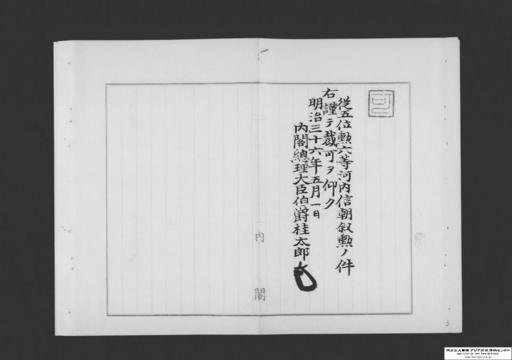 可
従五位勲六等河内信朝叙勲ノ件
右謹テ裁可ヲ仰ク
明治三十六年五月一日
内閣總理大臣伯爵桂太郎
内閣
3